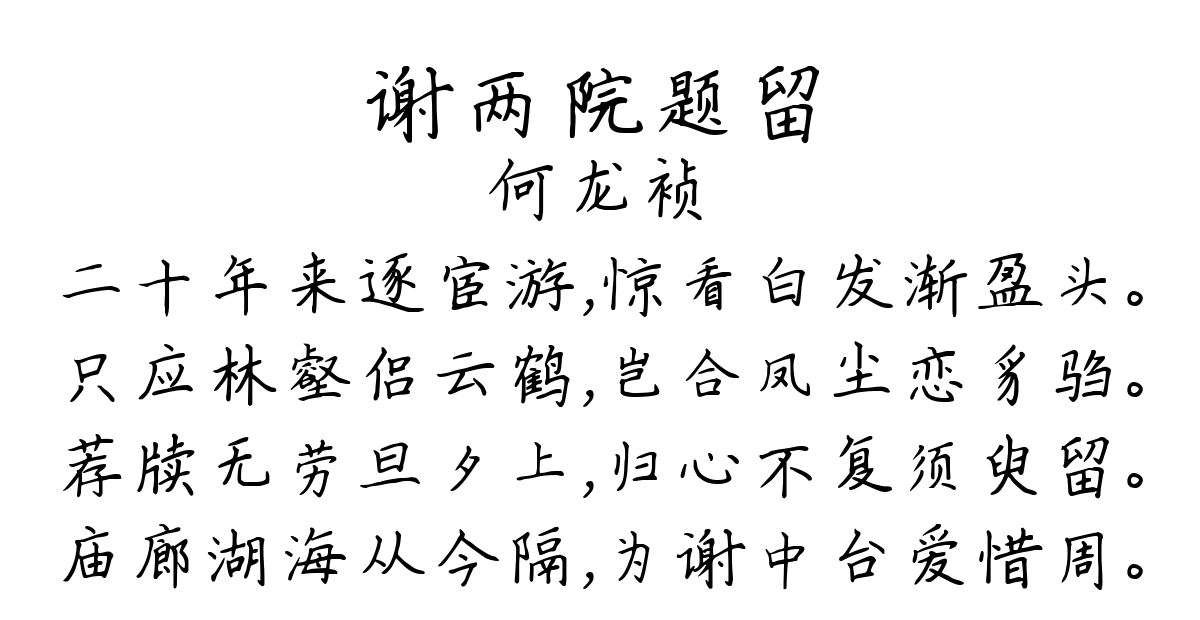 谢两院题留
何龙祯
二十年来逐宦游,惊看白发渐盈头。
只应林壑侣云鹤,岂合风尘恋豸驺。
荐牍无劳旦夕上,归心不复须臾留。
庙廊湖海从今隔,为谢中台爱惜周。